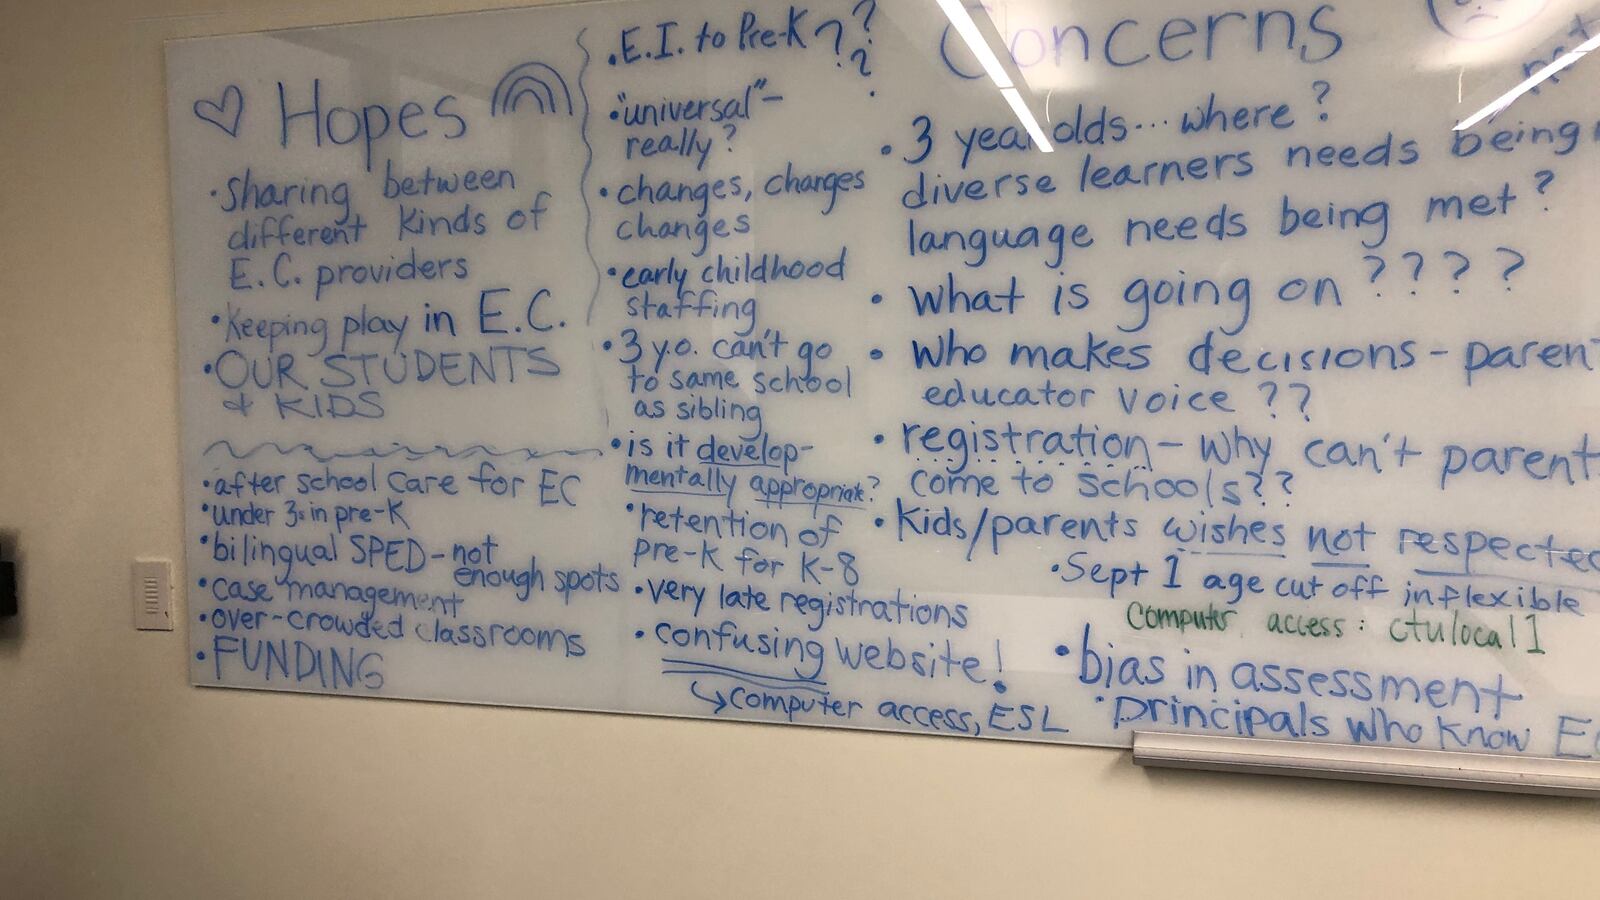 Hopes
• Sharing between
different kinds of
E.C. providers
• Keeping play in E.C.
• OUR STUDENTS
+ KIDS
• after school care for EC
• under 3s in pre-K
• bilingual SPED - not
enough spots
• case management
• over-crowded classrooms
• FUNDING
• E.I. to Pre-K ? ? ?
• "universal" -
really?
• changes, changes
changes
• early childhood
staffing
• 3 y.o. can't go
to same school
as sibling
• is it develop-
mentally appropriate?
• retention of
pre-K for K-8
• very late registrations
• confusing website!
↳ computer access, ESL
Concerns
• 3 year olds... where?
diverse learners needs being
language needs being met?
• what is going on ????
• who makes decisions - paren
educator voice ??
• registration - why can't parent
come to schools??
• Kids/parents wishes not respected
• Sept 1 age cut off inflexible
Computer access: ctulocal1
• bias in assessment
• principals who know E